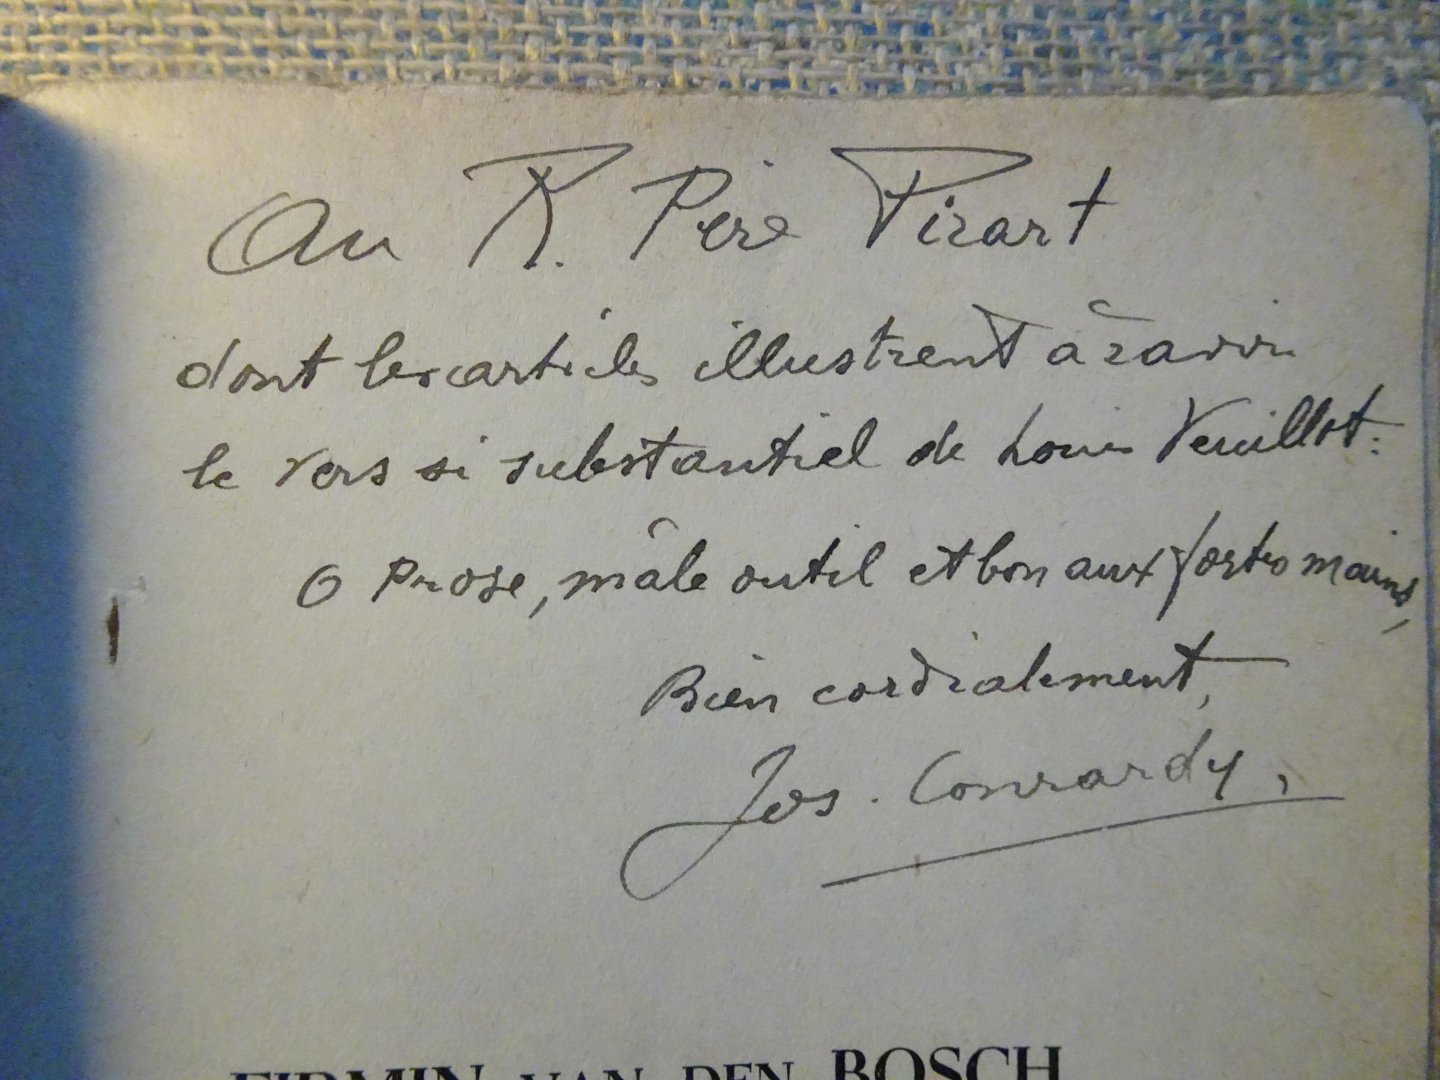 Au R. Père Pirart
dont les articles illustrent à ravir
le vers si substantiel de Louis Veuillot :
O Prose, mâle outil et bon aux fortes mains,
Bien cordialement,
Jos. Conrardy,
FIRMIN VAN DEN BOSCH